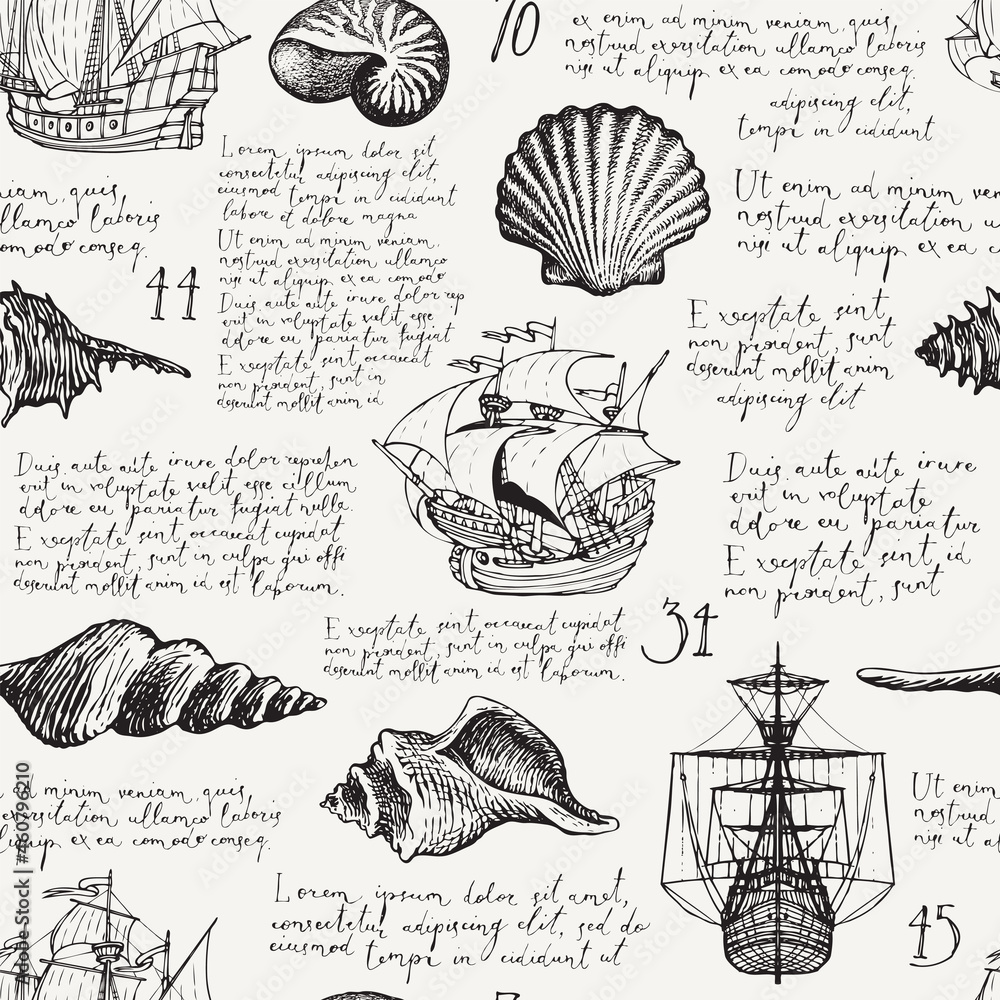 70
ex enim ad minim veniam, quis,
nostrud exersitation ullamco laboris
nisi ut aliquip ex ea comodo conseq.
adipiscing elit,
tempr in cididunt
Lorem ipsum dolor sit
consectetur adipiscing elit,
eiusmod tempi in cididunt
labore et dolore magna
Ut enim ad minim veniam,
nostrud exersitation ullamco
nisi ut aliquip ex ea comodo
Duis aute aute irure dolor rep
erit in voluptate velit esse
dolore eu pariatur fugiat
Exceptate sint, occaecat
non proident, sunt in
deserunt mollit anim id
niam, quis,
ullamco laboris
comodo conseq.
44
Ut enim ad minim ven
nostrud exersitation u
nisi ut aliquip ex ea c
Exceptate sint
non proident, sunt
deserunt mollit anim
adipiscing elit
Duis aute aute irure dolor reprehen
erit in voluptate velit esse cillum
dolore eu pariatur fugiat nulla.
Exceptate sint, occaecat cupidat
non proident, sunt in culpa qui offi
deserunt mollit anim id est laborum.
Duis aute aute irure
erit in voluptate
dolore eu pariatur
Exceptate sint, id
non proident, sunt
Exceptate sint, occaecat cupidat
non proident, sunt in culpa qui offi
deserunt mollit anim id est laborum.
34
d minim veniam, quis,
exersitation ullamco laboris
aliquip ex ea comodo conseq.
Ut enim
nostrud
nisi ut a
Lorem ipsum dolor sit amet,
consectetur adipiscing elit, sed do
eiusmod tempi in cididunt ut
45
Adobe Stock | #460796210